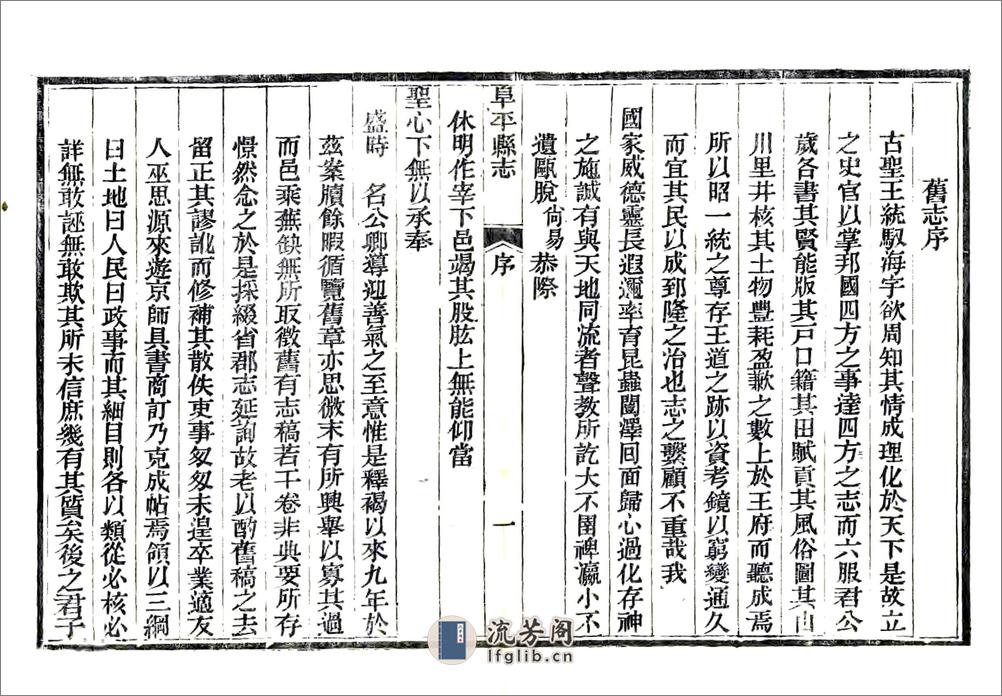 舊志序
古聖王統馭海宇欲周知其情成理化於天下是故立
之史官以掌邦國四方之事達四方之志而六服君公
歲各書其賢能版其戶口籍其田賦貢其風俗圖其山
川里井核其土物豐耗盈歉之數上於王府而聽成焉
所以昭一統之尊存王道之跡以資考鏡以窮變通久
而宜其民以成郅隆之治也志之繫顧不重哉我
國家威德靈長遐邇率育昆蟲闓澤回面歸心過化存神
之施誠有與天地同流者聲教所訖大不圉裨瀛小不
遺甌脫尙易恭際
阜平縣志
序
一
休明作宰下邑竭其股肱上無能仰當
聖心下無以承奉
盛時 名公卿導迎善氣之至意惟是釋褐以來九年於
茲案牘餘暇循覽舊章亦思微末有所興舉以寡其過
而邑乘蕪缺無所取徵舊有志稿若干卷非典要所存
憬然念之於是採綴省郡志延詢故老以酌舊稿之去
留正其謬訛而修補其散佚吏事匆匆未遑卒業適友
人巫思源來遊京師具書商訂乃克成帖焉領以三綱
曰土地曰人民曰政事而其細目則各以類從必核必
詳無敢誣無敢欺其所未信庶幾有其質矣後之君子
流芳阁
lfglib.cn